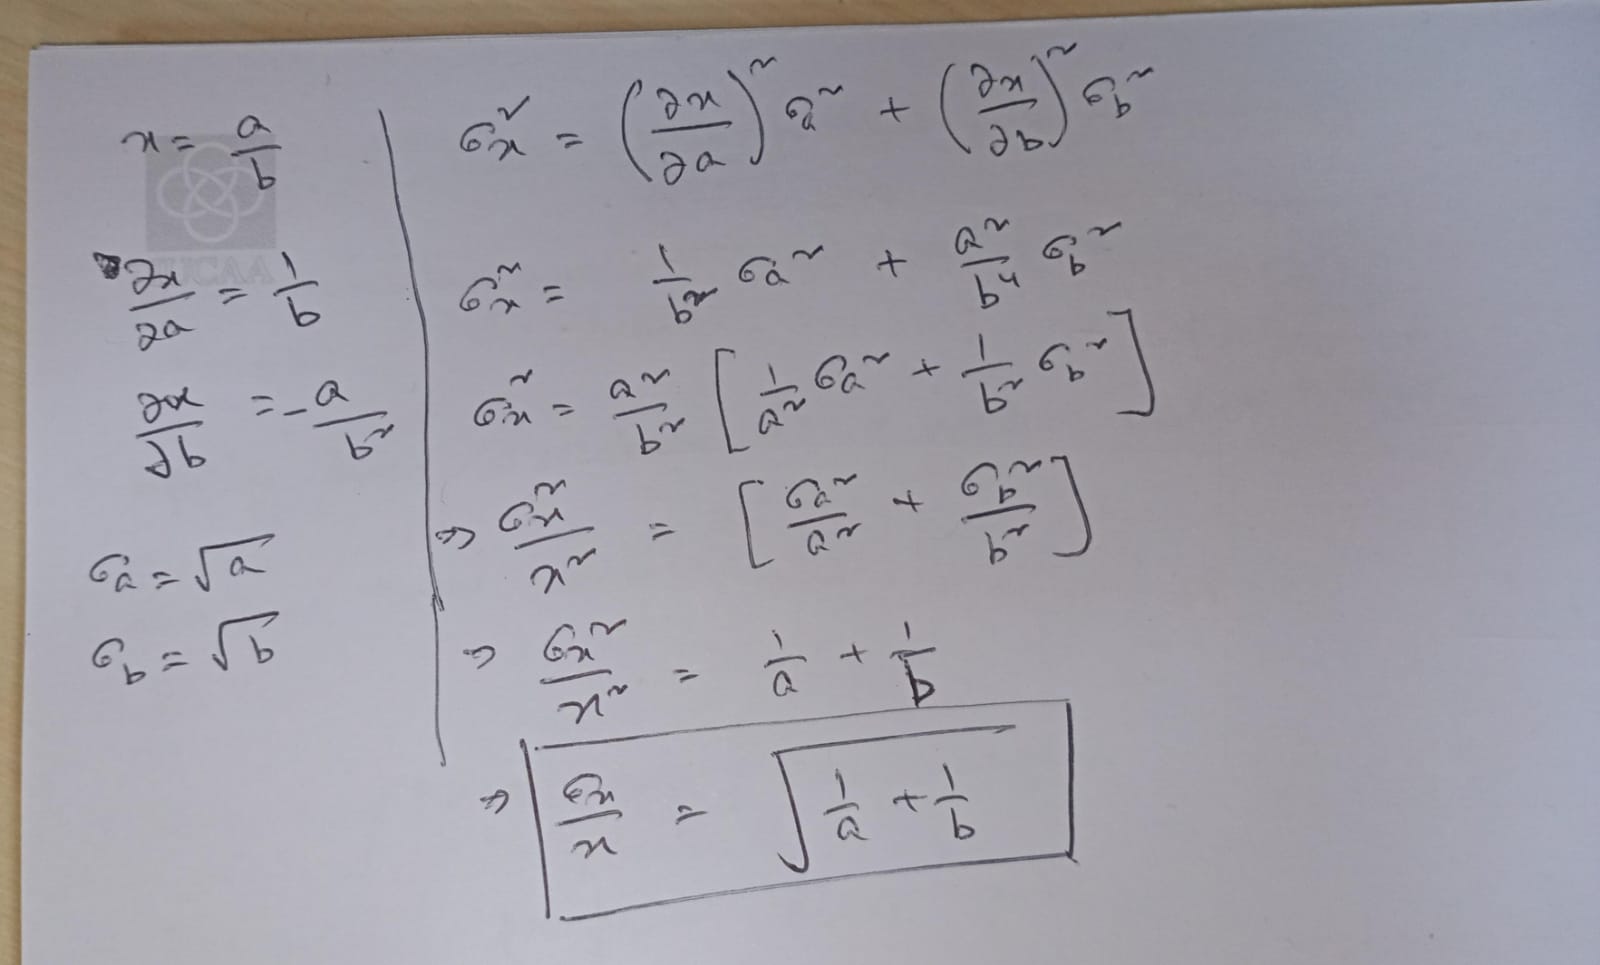 x = a/b
∂x/∂a = 1/b
∂x/∂b = -a/b²
σₐ = √a
σ_b = √b
σₓ² = (∂x/∂a)² σₐ² + (∂x/∂b)² σ_b²
σₓ² = 1/b² σₐ² + a²/b⁴ σ_b²
σₓ² = a²/b² [1/a² σₐ² + 1/b² σ_b²]
⇒ σₓ²/x² = [σₐ²/a² + σ_b²/b²]
⇒ σₓ²/x² = 1/a + 1/b
⇒ σₓ/x = √(1/a + 1/b)